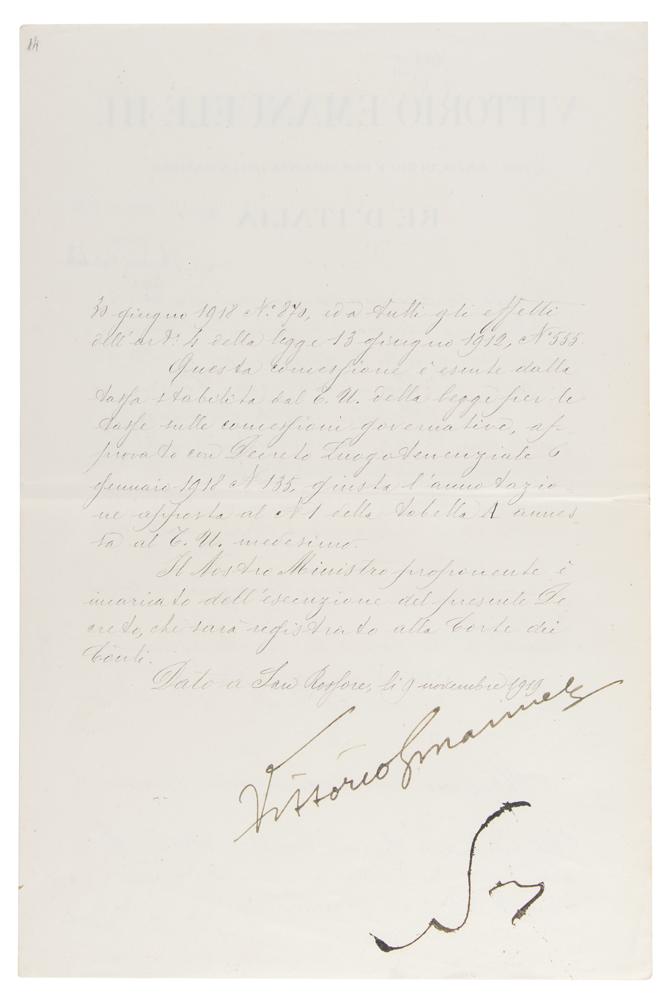 14
30 giugno 1918 N.º 870, ed a tutti gli effetti
dell'art.º 4 della legge 13 giugno 1912, N.º 555.
Questa concessione è esente dalla
tassa stabilita dal T. U. della legge per le
tasse sulle concessioni governative, ap-
provato con Decreto Luogotenenziale 6
gennaio 1918 N.º 135, giusta l'annotazio-
ne apposta al N.º 1 della tabella A annes-
sa al T. U. medesimo.
Il Nostro Ministro proponente è
incaricato dell'esecuzione del presente De-
creto, che sarà registrato alla Corte dei
Conti.
Dato a San Rossore, li 9 novembre 1919
Vittorio Emanuele
VITTORIO EMANUELE III
RE D'ITALIA